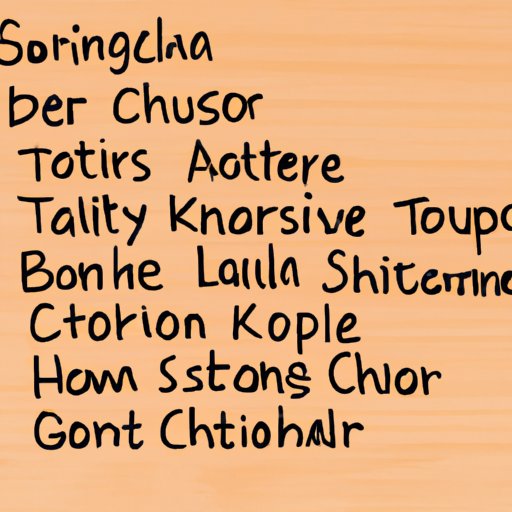 Soringclna
ber Chusor
Totirs Aottere
Tality Knorsive Toupo
Bonhe Laula Shitermne
Ctorion Kople
Hown Sstons Chior
Gont Chtiohalr